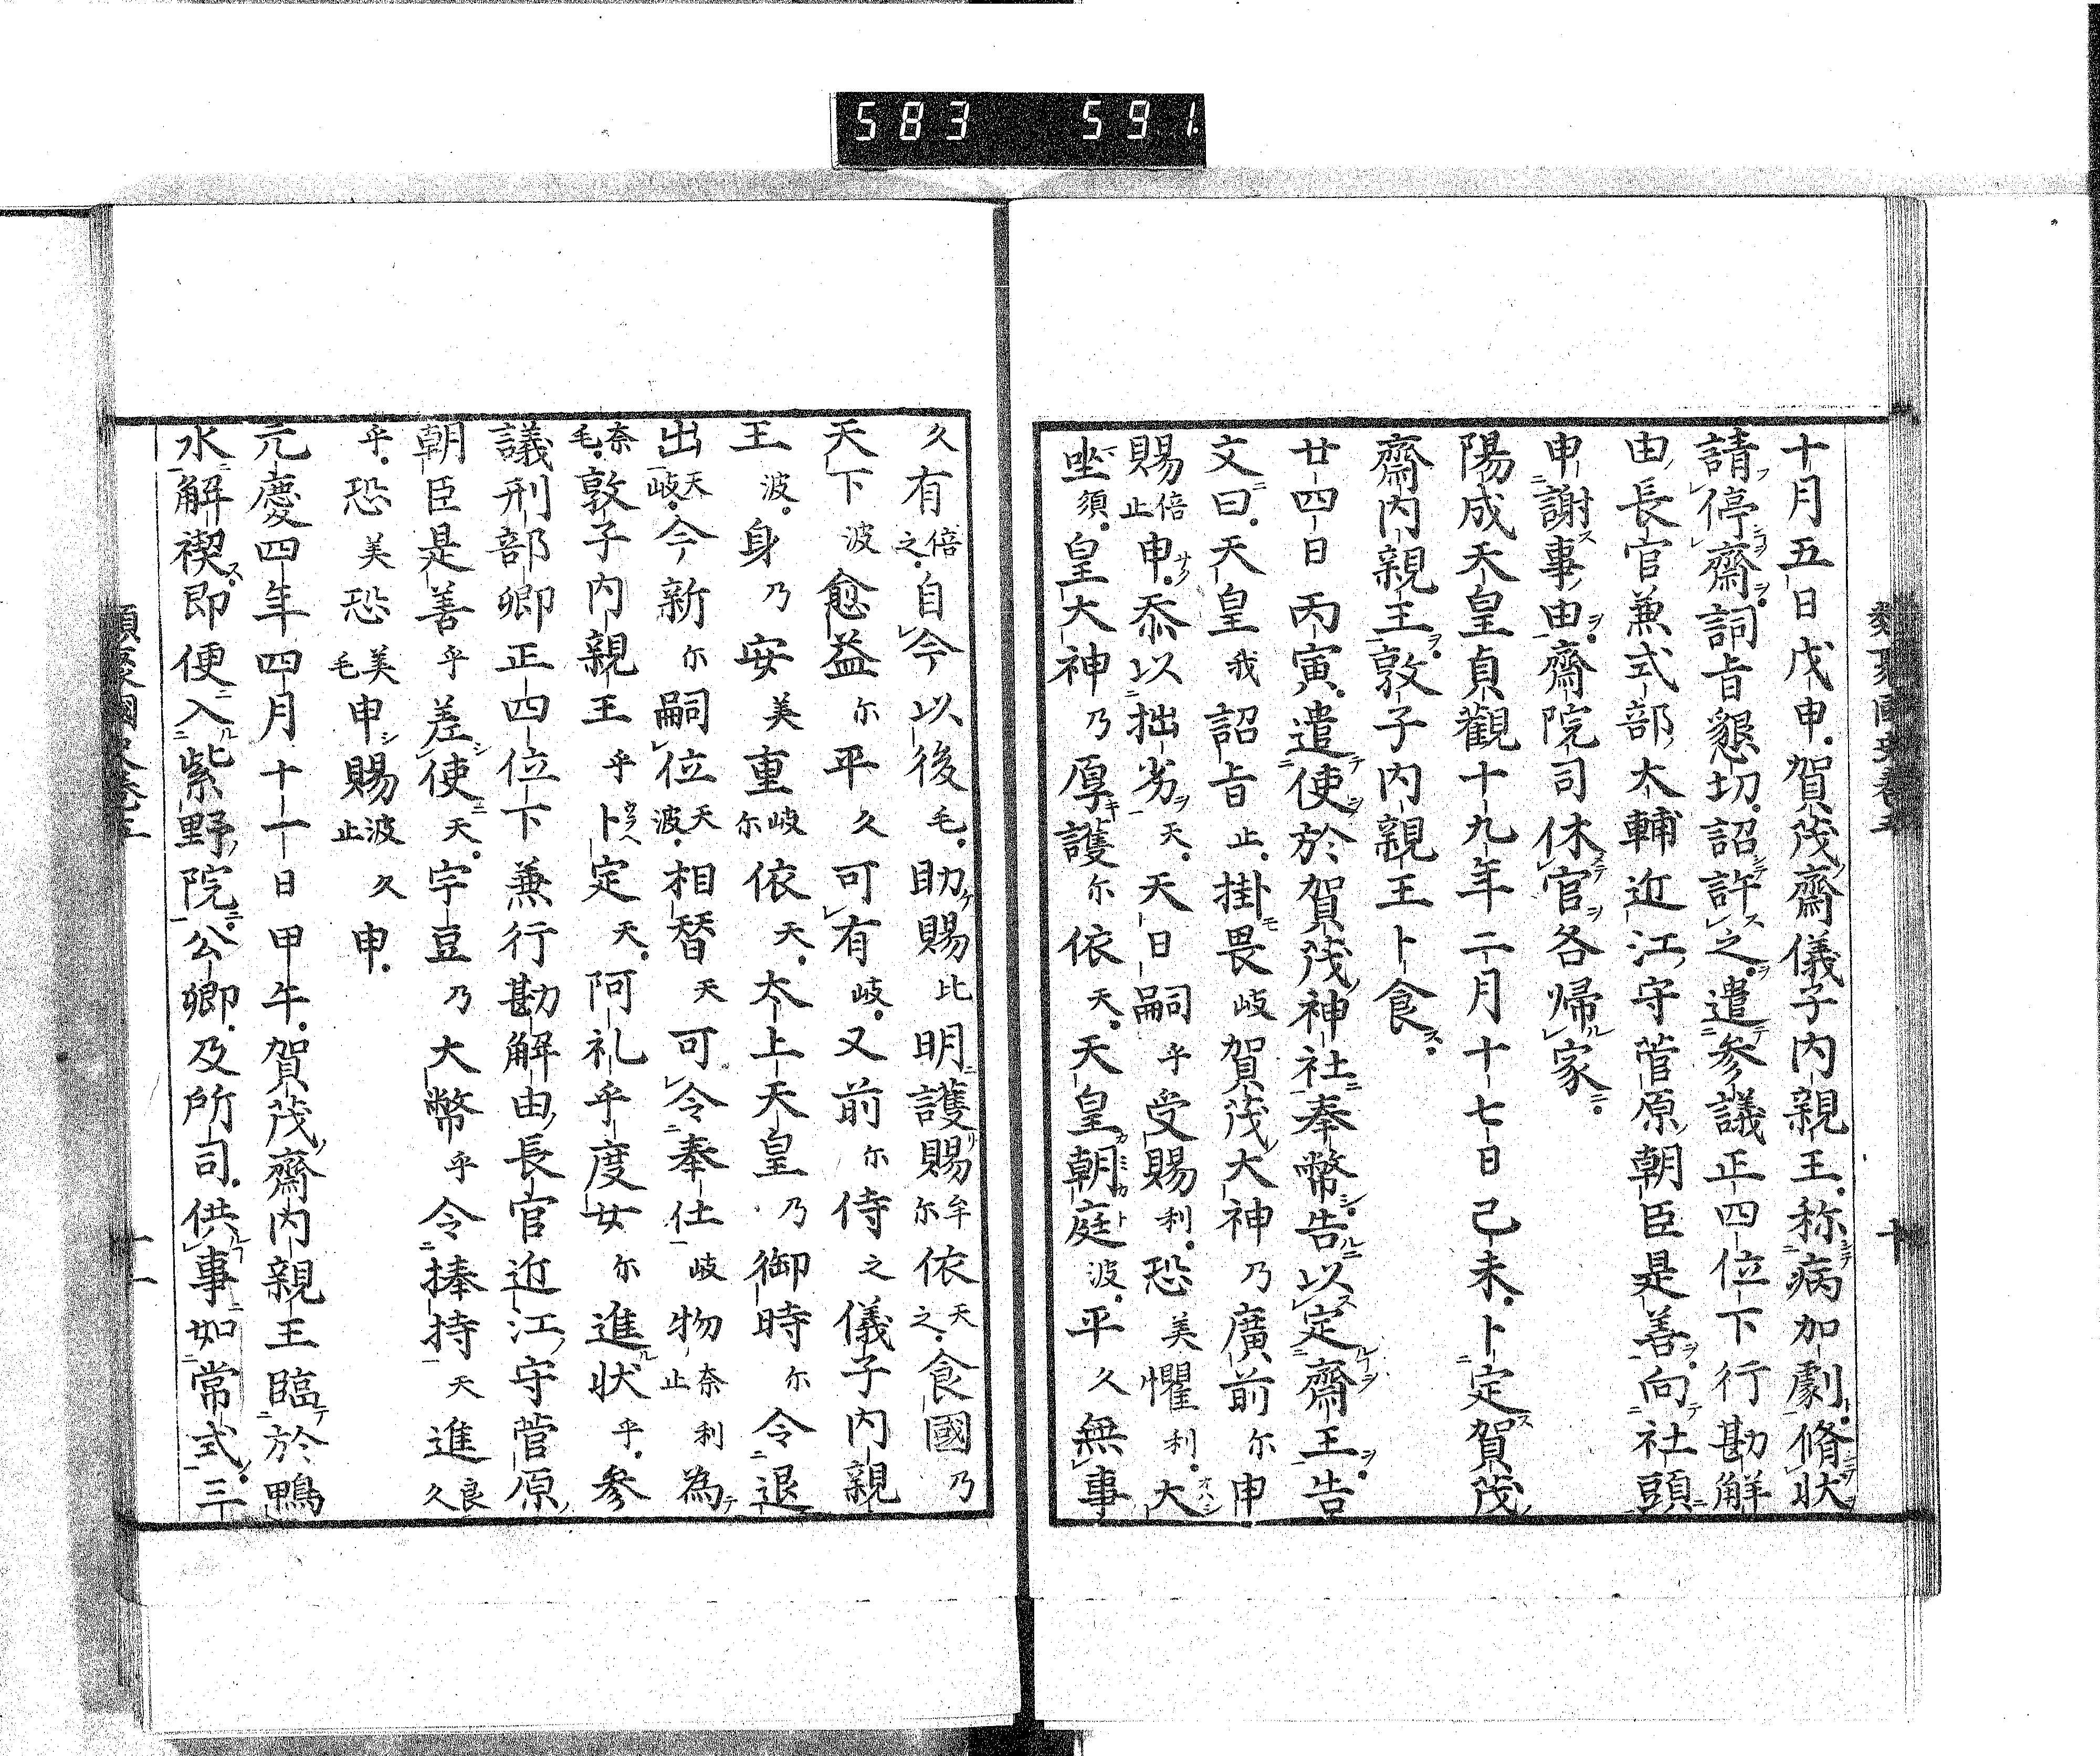 583 591.
十月五日戊申賀茂齋儀子內親王称病加劇脩状
請停齋詞旨懇切詔許之遣参議正四位下行勘解
由長官兼式部大輔近江守菅原朝臣是善向社頭
申謝事由齋院司休官各帰家
陽成天皇貞觀十九年二月十七日己未卜定賀茂
齋內親王敦子內親王卜食
廿四日丙寅遣使於賀茂神社奉幣告以定齋王告
文曰天皇我詔旨止掛畏岐賀茂大神乃廣前尓申
賜倍止申忝以拙劣天天日嗣乎受賜利恐美懼利大
坐須皇大神乃厚護尓依天天皇朝庭波平久無事
久有倍之自今以後毛助賜比明護賜牟尓依天之食國乃
天下波愈益尓平久可有岐又前尓侍之儀子內親
王波身乃安美重岐尓依天太上天皇乃御時尓令退
出天岐今新尓嗣位天波相替天可令奉仕岐物奈利止為
奈毛敦子內親王乎卜定天阿礼乎度女尓進状乎参
議刑部卿正四位下兼行勘解由長官近江守菅原
朝臣是善乎差使天宇豆乃大幣乎令捧持天進良久
乎恐美恐美毛申賜波止久申
元慶四年四月十一日甲午賀茂齋內親王臨於鴨
水解禊即便入紫野院公卿及所司供事如常式三
類聚國史卷五
十一